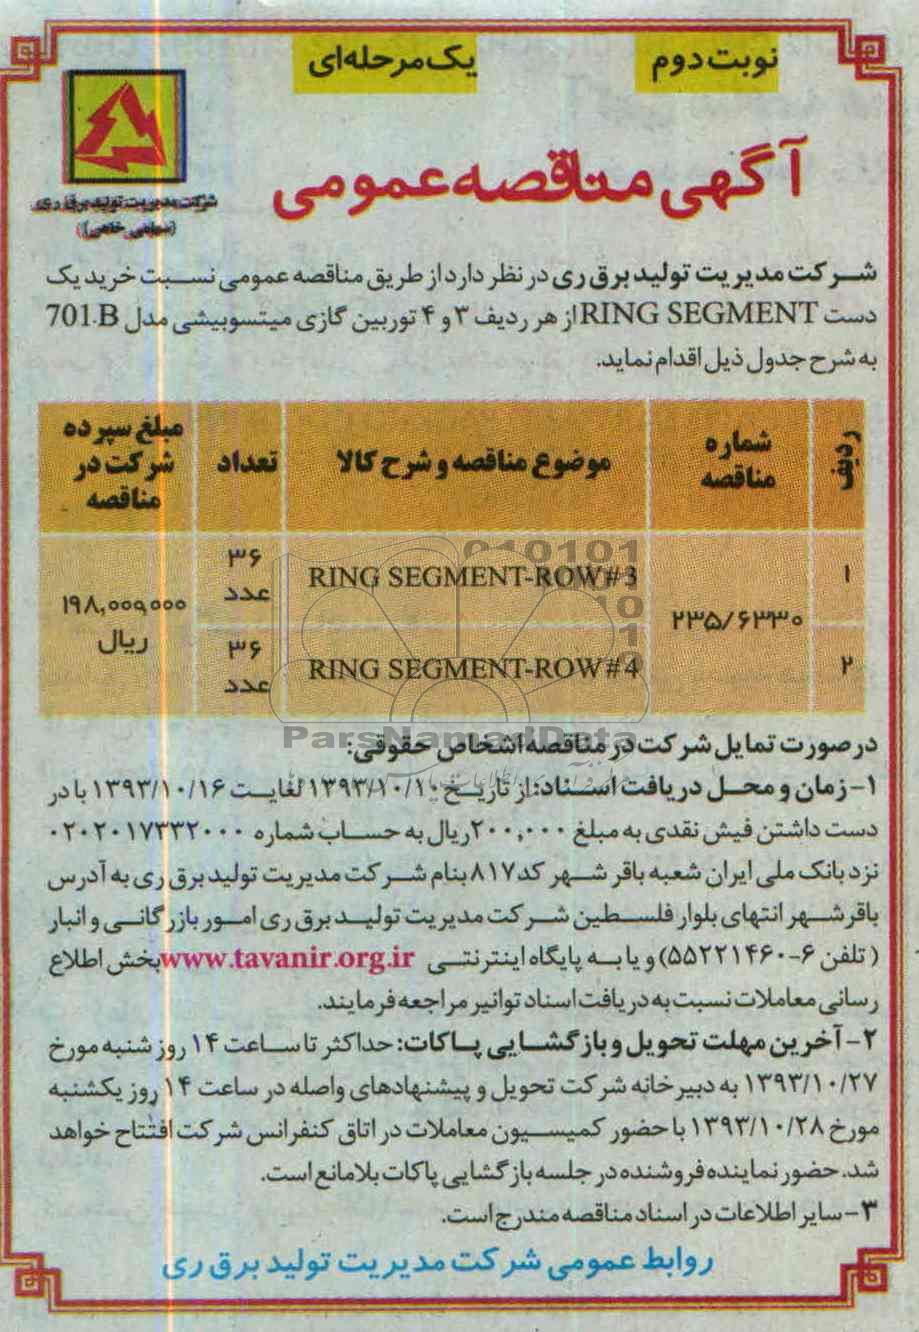 نوبت دوم
یک مرحله‌ای
شرکت مدیریت تولید برق ری
(سهامی خاص)
آگهی مناقصه عمومی
شرکت مدیریت تولید برق ری در نظر دارد از طریق مناقصه عمومی نسبت خرید یک
دست RING SEGMENT از هر ردیف ۳ و ۴ توربین گازی میتسوبیشی مدل 701.B
به شرح جدول ذیل اقدام نماید.
ردیف | شماره مناقصه | موضوع مناقصه و شرح کالا | تعداد | مبلغ سپرده شرکت در مناقصه
۱ | ۲۳۵/۶۳۳۰ | RING SEGMENT-ROW#3 | ۳۶ عدد | ۱۹۸,۰۰۰,۰۰۰ ریال
۲ | RING SEGMENT-ROW#4 | ۳۶ عدد
ParsNamadData
در صورت تمایل شرکت در مناقصه اشخاص حقوقی:
۱- زمان و محل دریافت اسناد: از تاریخ ۱۳۹۳/۱۰/۱۰ لغایت ۱۳۹۳/۱۰/۱۶ با در
دست داشتن فیش نقدی به مبلغ ۲۰۰,۰۰۰ ریال به حساب شماره ۰۲۰۲۰۱۷۳۳۲۰۰۰
نزد بانک ملی ایران شعبه باقر شهر کد ۸۱۷ بنام شرکت مدیریت تولید برق ری به آدرس
باقرشهر انتهای بلوار فلسطین شرکت مدیریت تولید برق ری امور بازرگانی و انبار
(تلفن ۶-۵۵۲۲۱۴۶۰) و یا به پایگاه اینترنتی www.tavanir.org.ir بخش اطلاع
رسانی معاملات نسبت به دریافت اسناد توانیر مراجعه فرمایند.
۲- آخرین مهلت تحویل و بازگشایی پاکات: حداکثر تا ساعت ۱۴ روز شنبه مورخ
۱۳۹۳/۱۰/۲۷ به دبیرخانه شرکت تحویل و پیشنهادهای واصله در ساعت ۱۴ روز یکشنبه
مورخ ۱۳۹۳/۱۰/۲۸ با حضور کمیسیون معاملات در اتاق کنفرانس شرکت افتتاح خواهد
شد. حضور نماینده فروشنده در جلسه بازگشایی پاکات بلامانع است.
۳- سایر اطلاعات در اسناد مناقصه مندرج است.
روابط عمومی شرکت مدیریت تولید برق ری